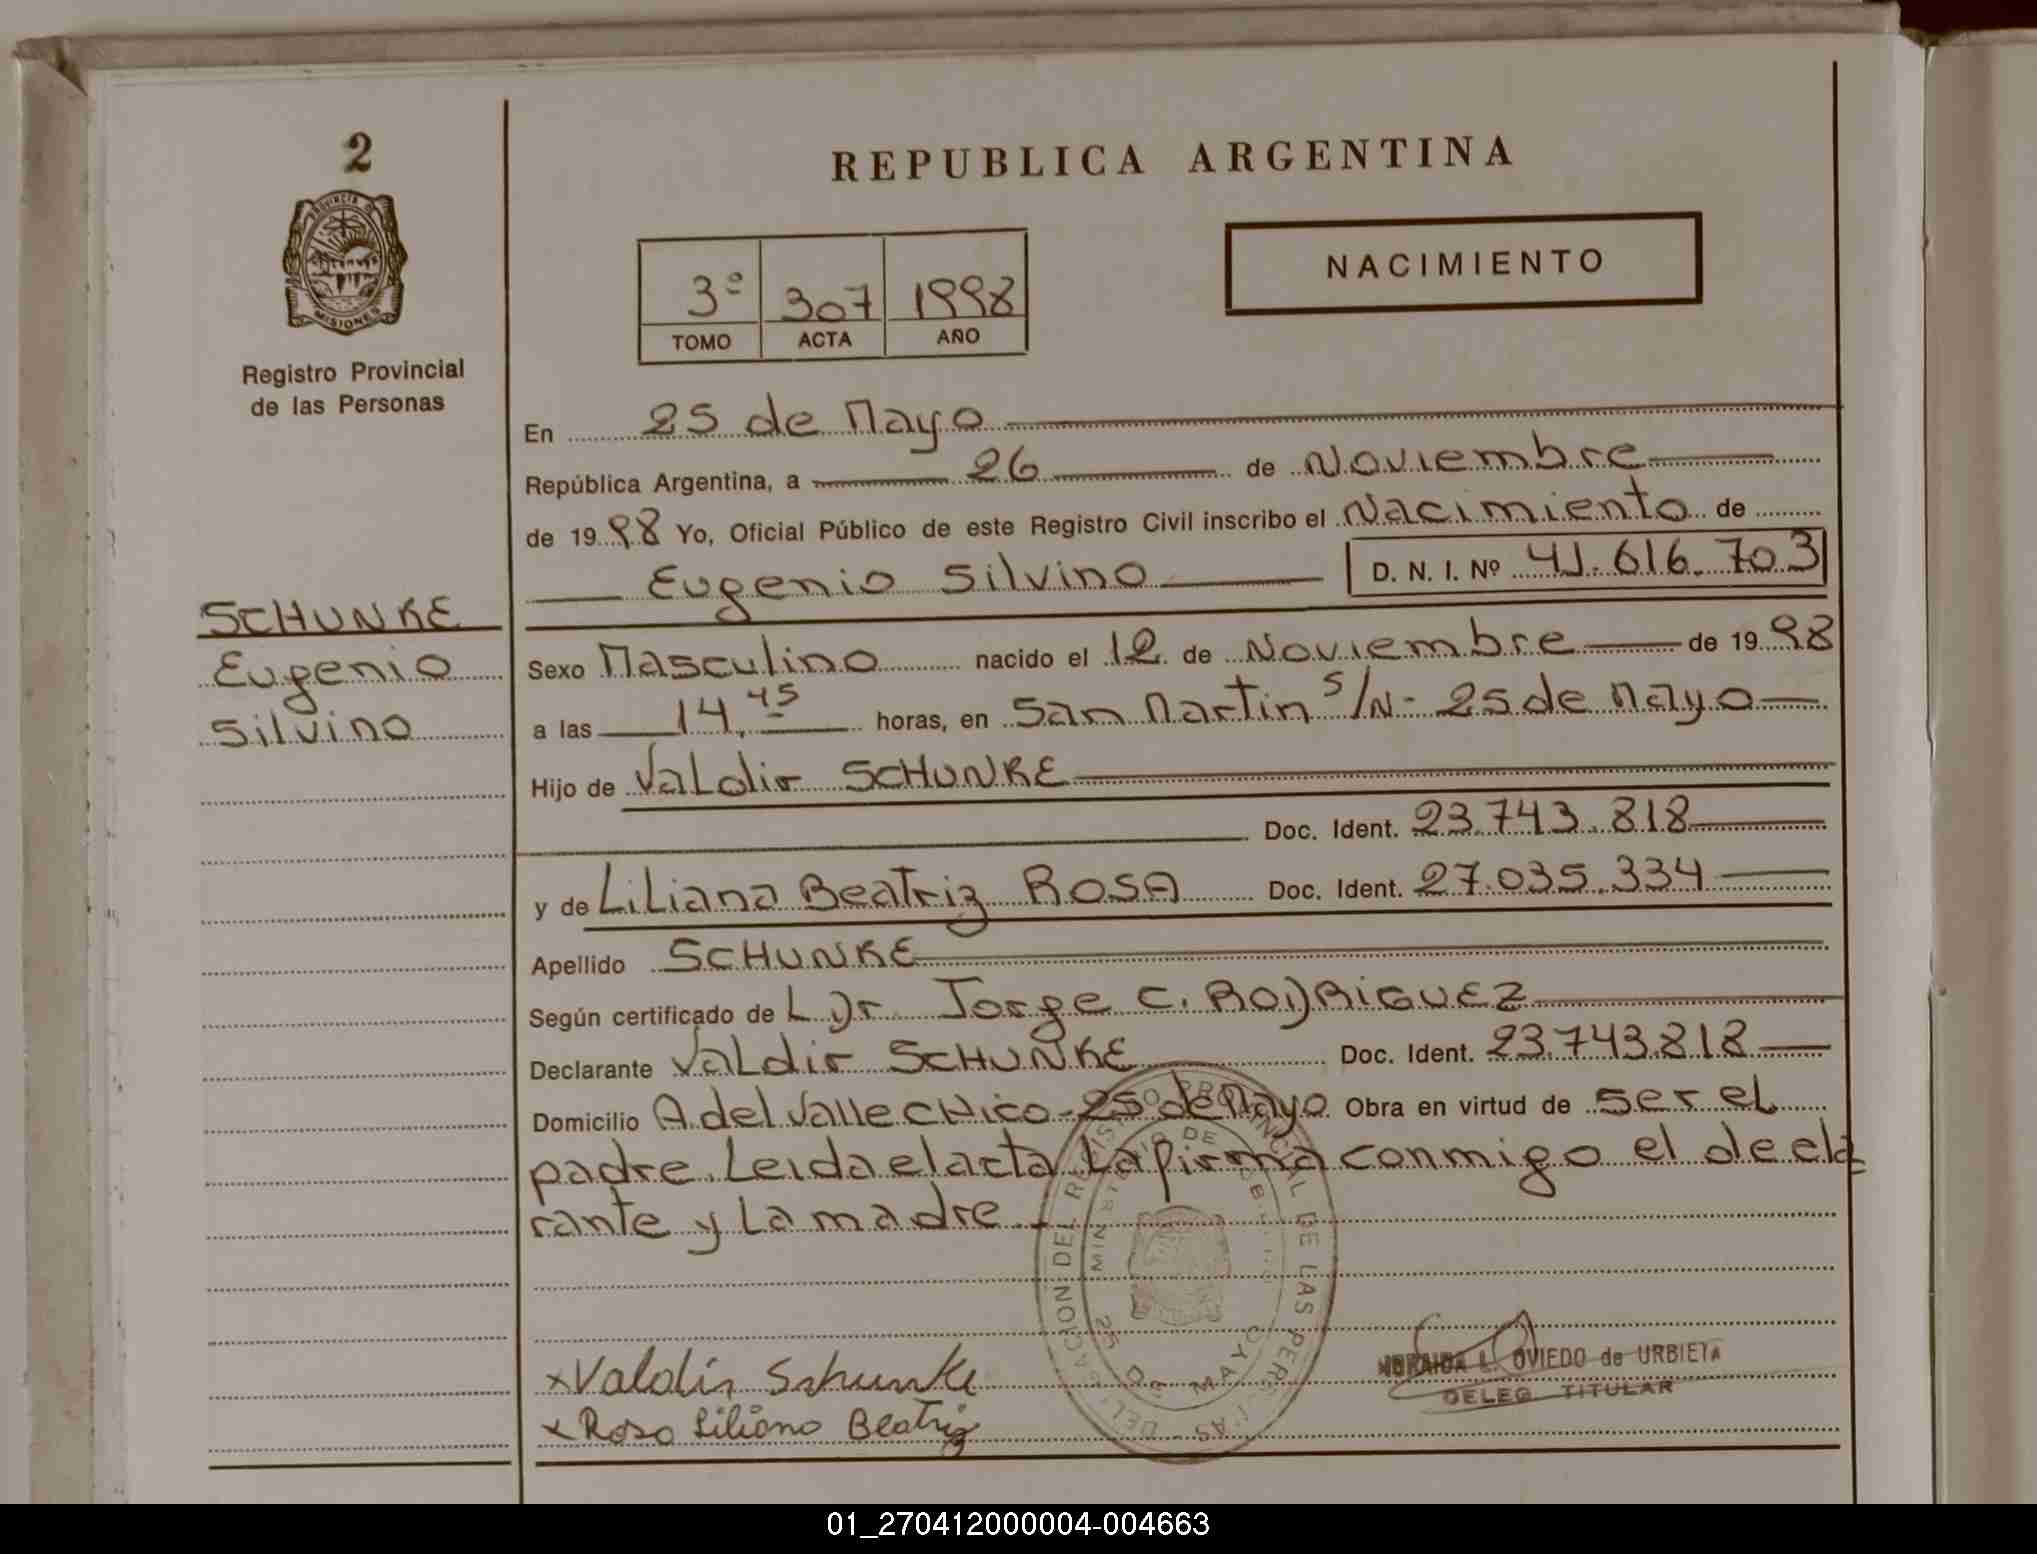 2
PROVINCIA D
MISIONES
Registro Provincial
de las Personas
SCHUNKE
Eugenio
Silvino
REPUBLICA ARGENTINA
NACIMIENTO
3º 307 1998
TOMO ACTA AÑO
En 25 de Mayo
República Argentina, a 26 de Noviembre
de 1998 Yo, Oficial Público de este Registro Civil inscribo el Nacimiento de
Eugenio Silvino D. N. I. Nº 41.616.703
Sexo Masculino nacido el 12 de Noviembre de 1998
a las 14,45 horas, en San Martin S/N- 25 de Mayo
Hijo de Valdir SCHUNKE
Doc. Ident. 23.743.818
y de Liliana Beatriz ROSA Doc. Ident. 27.035.334
Apellido SCHUNKE
Según certificado de L Dr. Jorge C. RODRIGUEZ
Declarante Valdir SCHUNKE Doc. Ident. 23.743.818
Domicilio A. del Valle CHico - 25 de Mayo Obra en virtud de ser el
padre. Leida el acta La firma conmigo el decla
rante y La madre
REGISTRO PROVINCIAL DE LAS PERSONAS
MINISTERIO DE GOBIERNO
25 DE MAYO
x Valdir Schunke
x Rosa Liliana Beatriz
NORAIDA L. OVIEDO de URBIETA
DELEG TITULAR
01_270412000004-004663